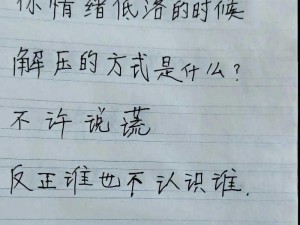 你情绪低落的时候
解压的方式是什么？
不许说谎
反正谁也不认识谁.